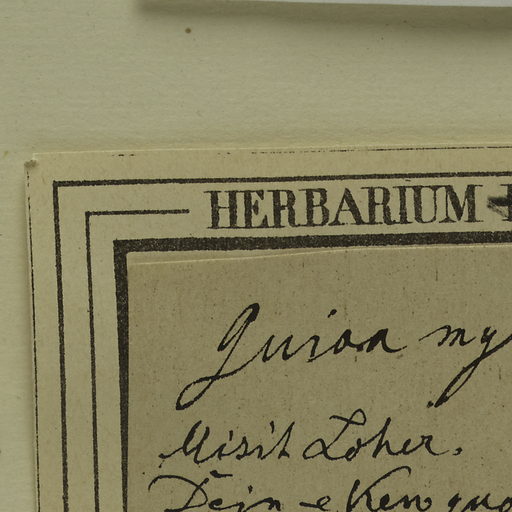 HERBARIUM
Guioa my
Misit Loher.
Dein e Kew quo